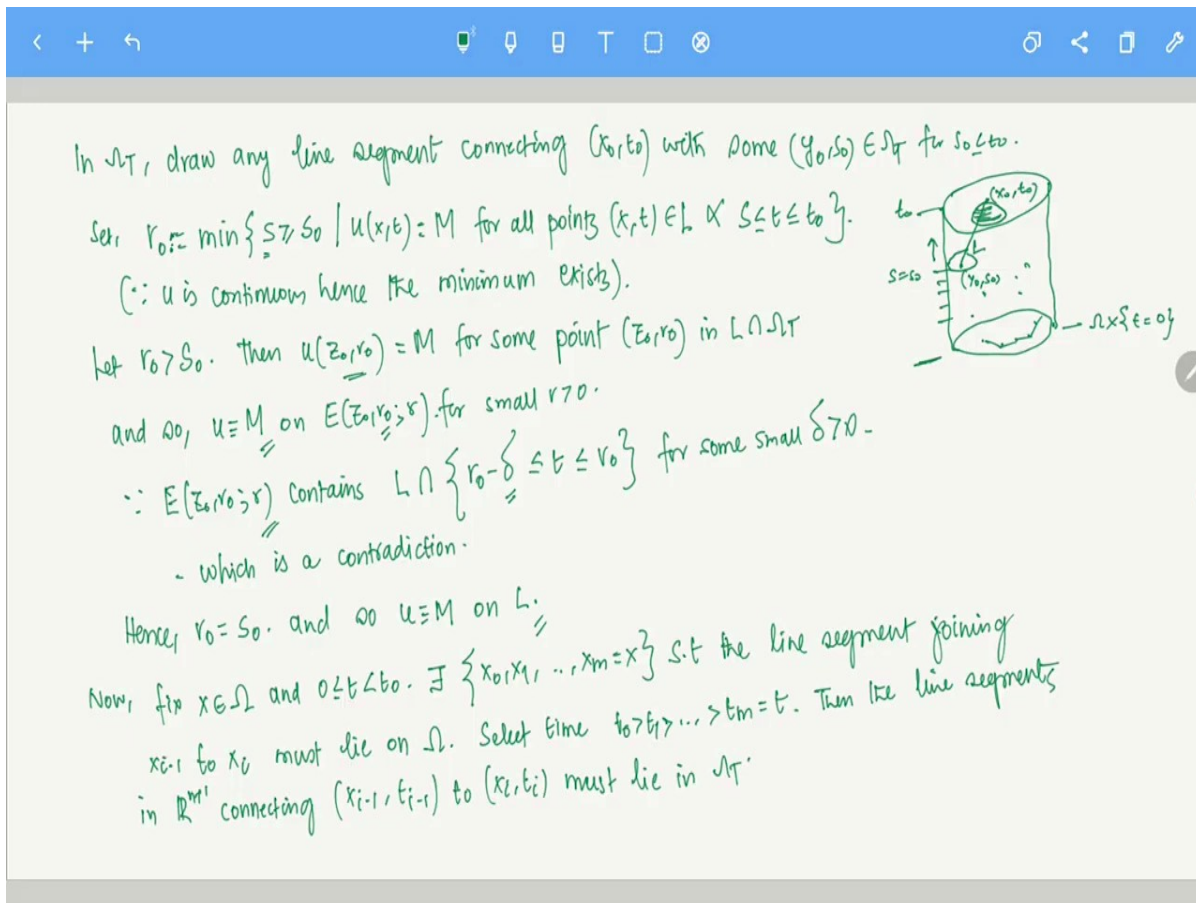 In Ω_T, draw any line segment connecting (x₀,t₀) with some (y₀,s₀) ∈ Ω_T for s₀ ≤ t₀.
Set, r₀ := min{s ≥ s₀ | u(x,t) = M for all points (x,t) ∈ L & s ≤ t ≤ t₀}.
(∵ u is continuous hence the minimum exists).
Let r₀ > s₀. Then u(z₀,r₀) = M for some point (z₀,r₀) in L ∩ Ω_T
and so, u ≡ M on E(z₀,r₀;r). for small r > 0.
∵ E(z₀,r₀;r) contains L ∩ {r₀-δ ≤ t ≤ r₀} for some small δ > 0.
- which is a contradiction.
Hence, r₀ = s₀. and so u ≡ M on L.
Now, fix x ∈ Ω and 0 ≤ t < t₀. ∃ {x₀, x₁, .., x_m = x} s.t the line segment joining
x_{i-1} to x_i must lie on Ω. Select time t₀ > t₁ > ... > t_m = t. Then the line segments
in ℝ^{n+1} connecting (x_{i-1}, t_{i-1}) to (x_i, t_i) must lie in Ω_T.
t₀
(x₀,t₀)
L
s=s₀
(y₀,s₀)
Ω×{t=0}
T